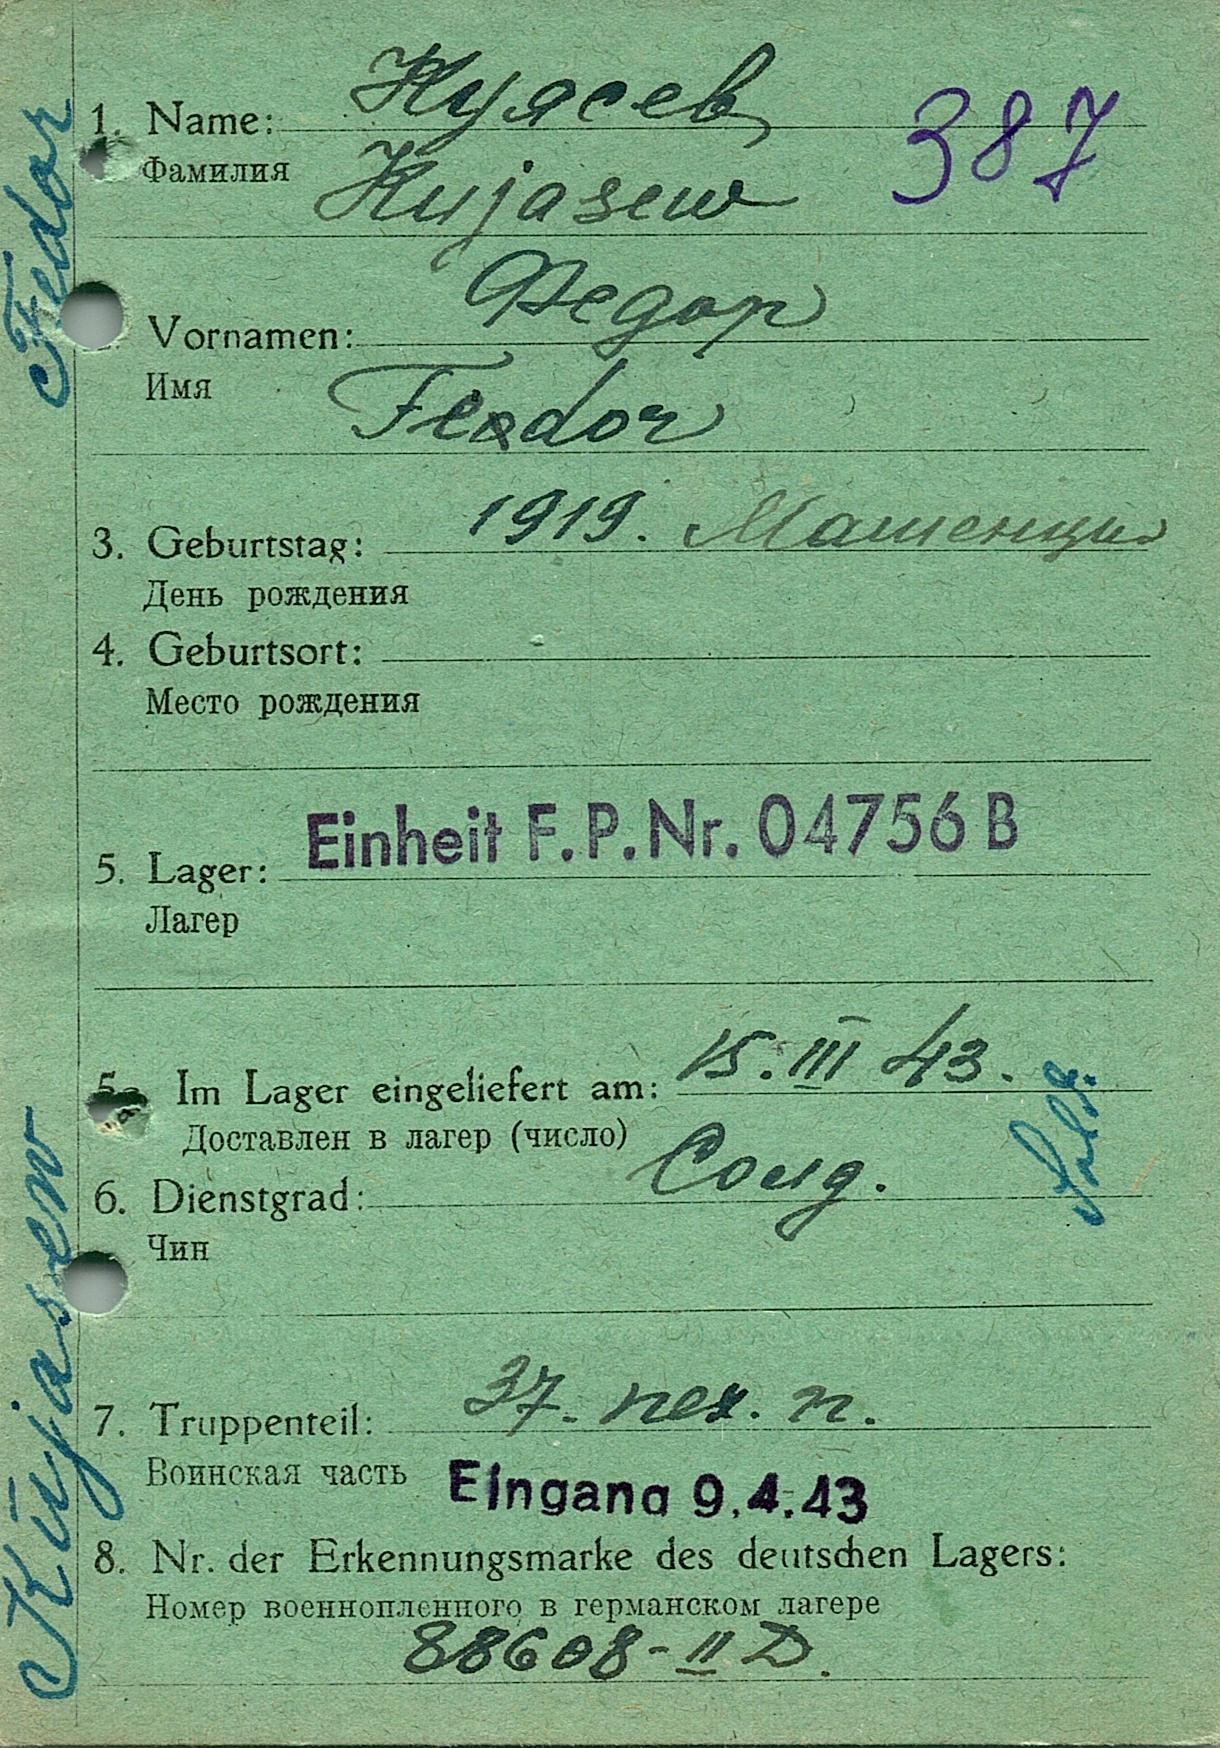 Куясев
1. Name:
387
Фамилия
Kujasew
Федор
Vornamen:
Имя
Feodor
3. Geburtstag: 1919.
День рождения
4. Geburtsort:
Место рождения
Einheit F.P.Nr. 04756 B
5. Lager:
Лагер
5a Im Lager eingeliefert am: 15. III 43.
Доставлен в лагер (число)
6. Dienstgrad: Солд.
Sold.
Чин
7. Truppenteil: 37. пех. п.
Воинская часть
Eingang 9.4.43
8. Nr. der Erkennungsmarke des deutschen Lagers:
Номер военнопленного в германском лагере
88608 - II D.
Kujasew Fedor